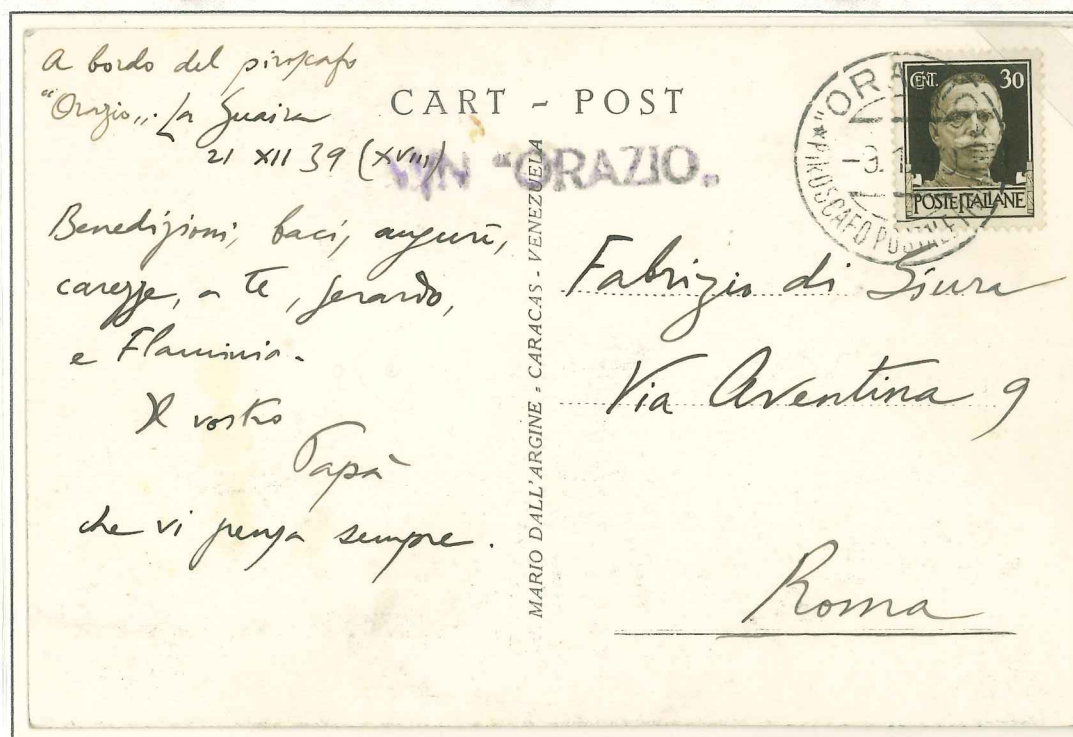 A bordo del piroscafo
"Orazio„. La Guaira
21 XII 39 (XVIII)
Benedizioni, baci, auguri,
carezze, a te, Gerardo,
e Flaminia.
Il vostro
Papà
che vi pensa sempre.
CART - POST
M/N "ORAZIO„
MARIO DALL'ARGINE - CARACAS - VENEZUELA
PIROSCAFO POSTALE
CENT. 30
POSTE ITALIANE
Fabrizio di Giura
Via Aventina 9
Roma